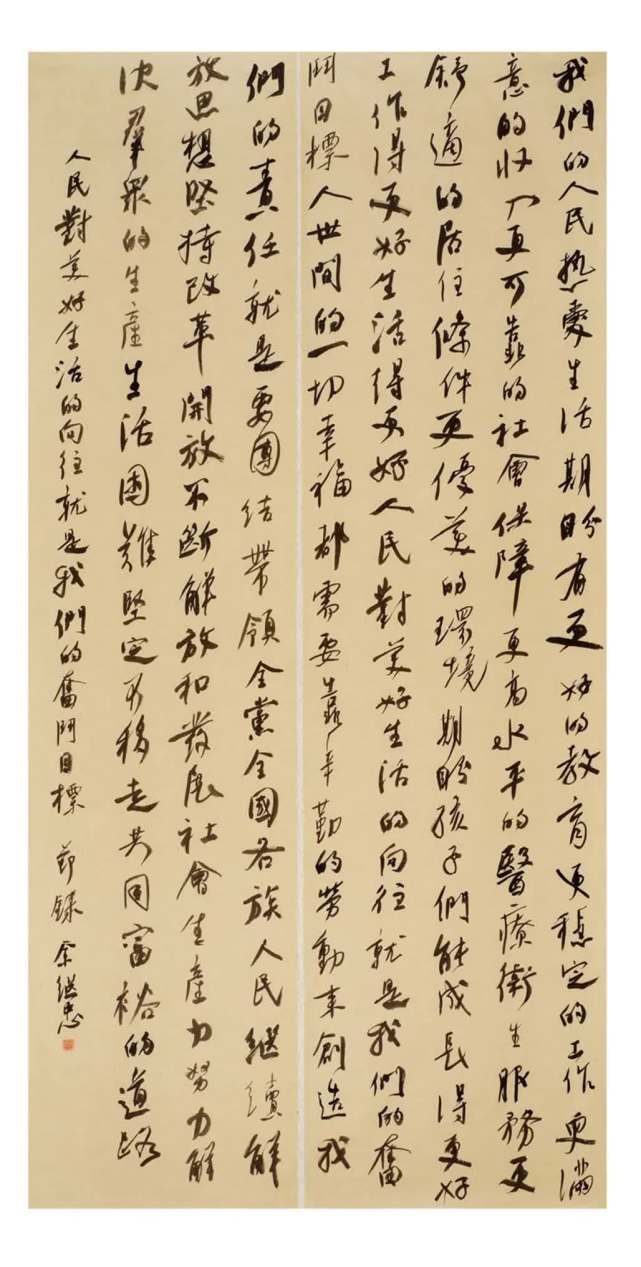 我們的人民熱愛生活期盼有更好的教育更穩定的工作更滿
意的收入更可靠的社會保障更高水平的醫療衛生服務更
舒適的居住條件更優美的環境期盼孩子們能成長得更好
工作得更好生活得更好人民對美好生活的向往就是我們的奮
鬥目標人世間的一切幸福都需要靠辛勤的勞動來創造我
們的責任就是要團結帶領全黨全國各族人民繼續解
放思想堅持改革開放不斷解放和發展社會生產力努力解
決羣衆的生產生活困難堅定不移走共同富裕的道路
人民對美好生活的向往就是我們的奮鬥目標 節錄 余繼忠